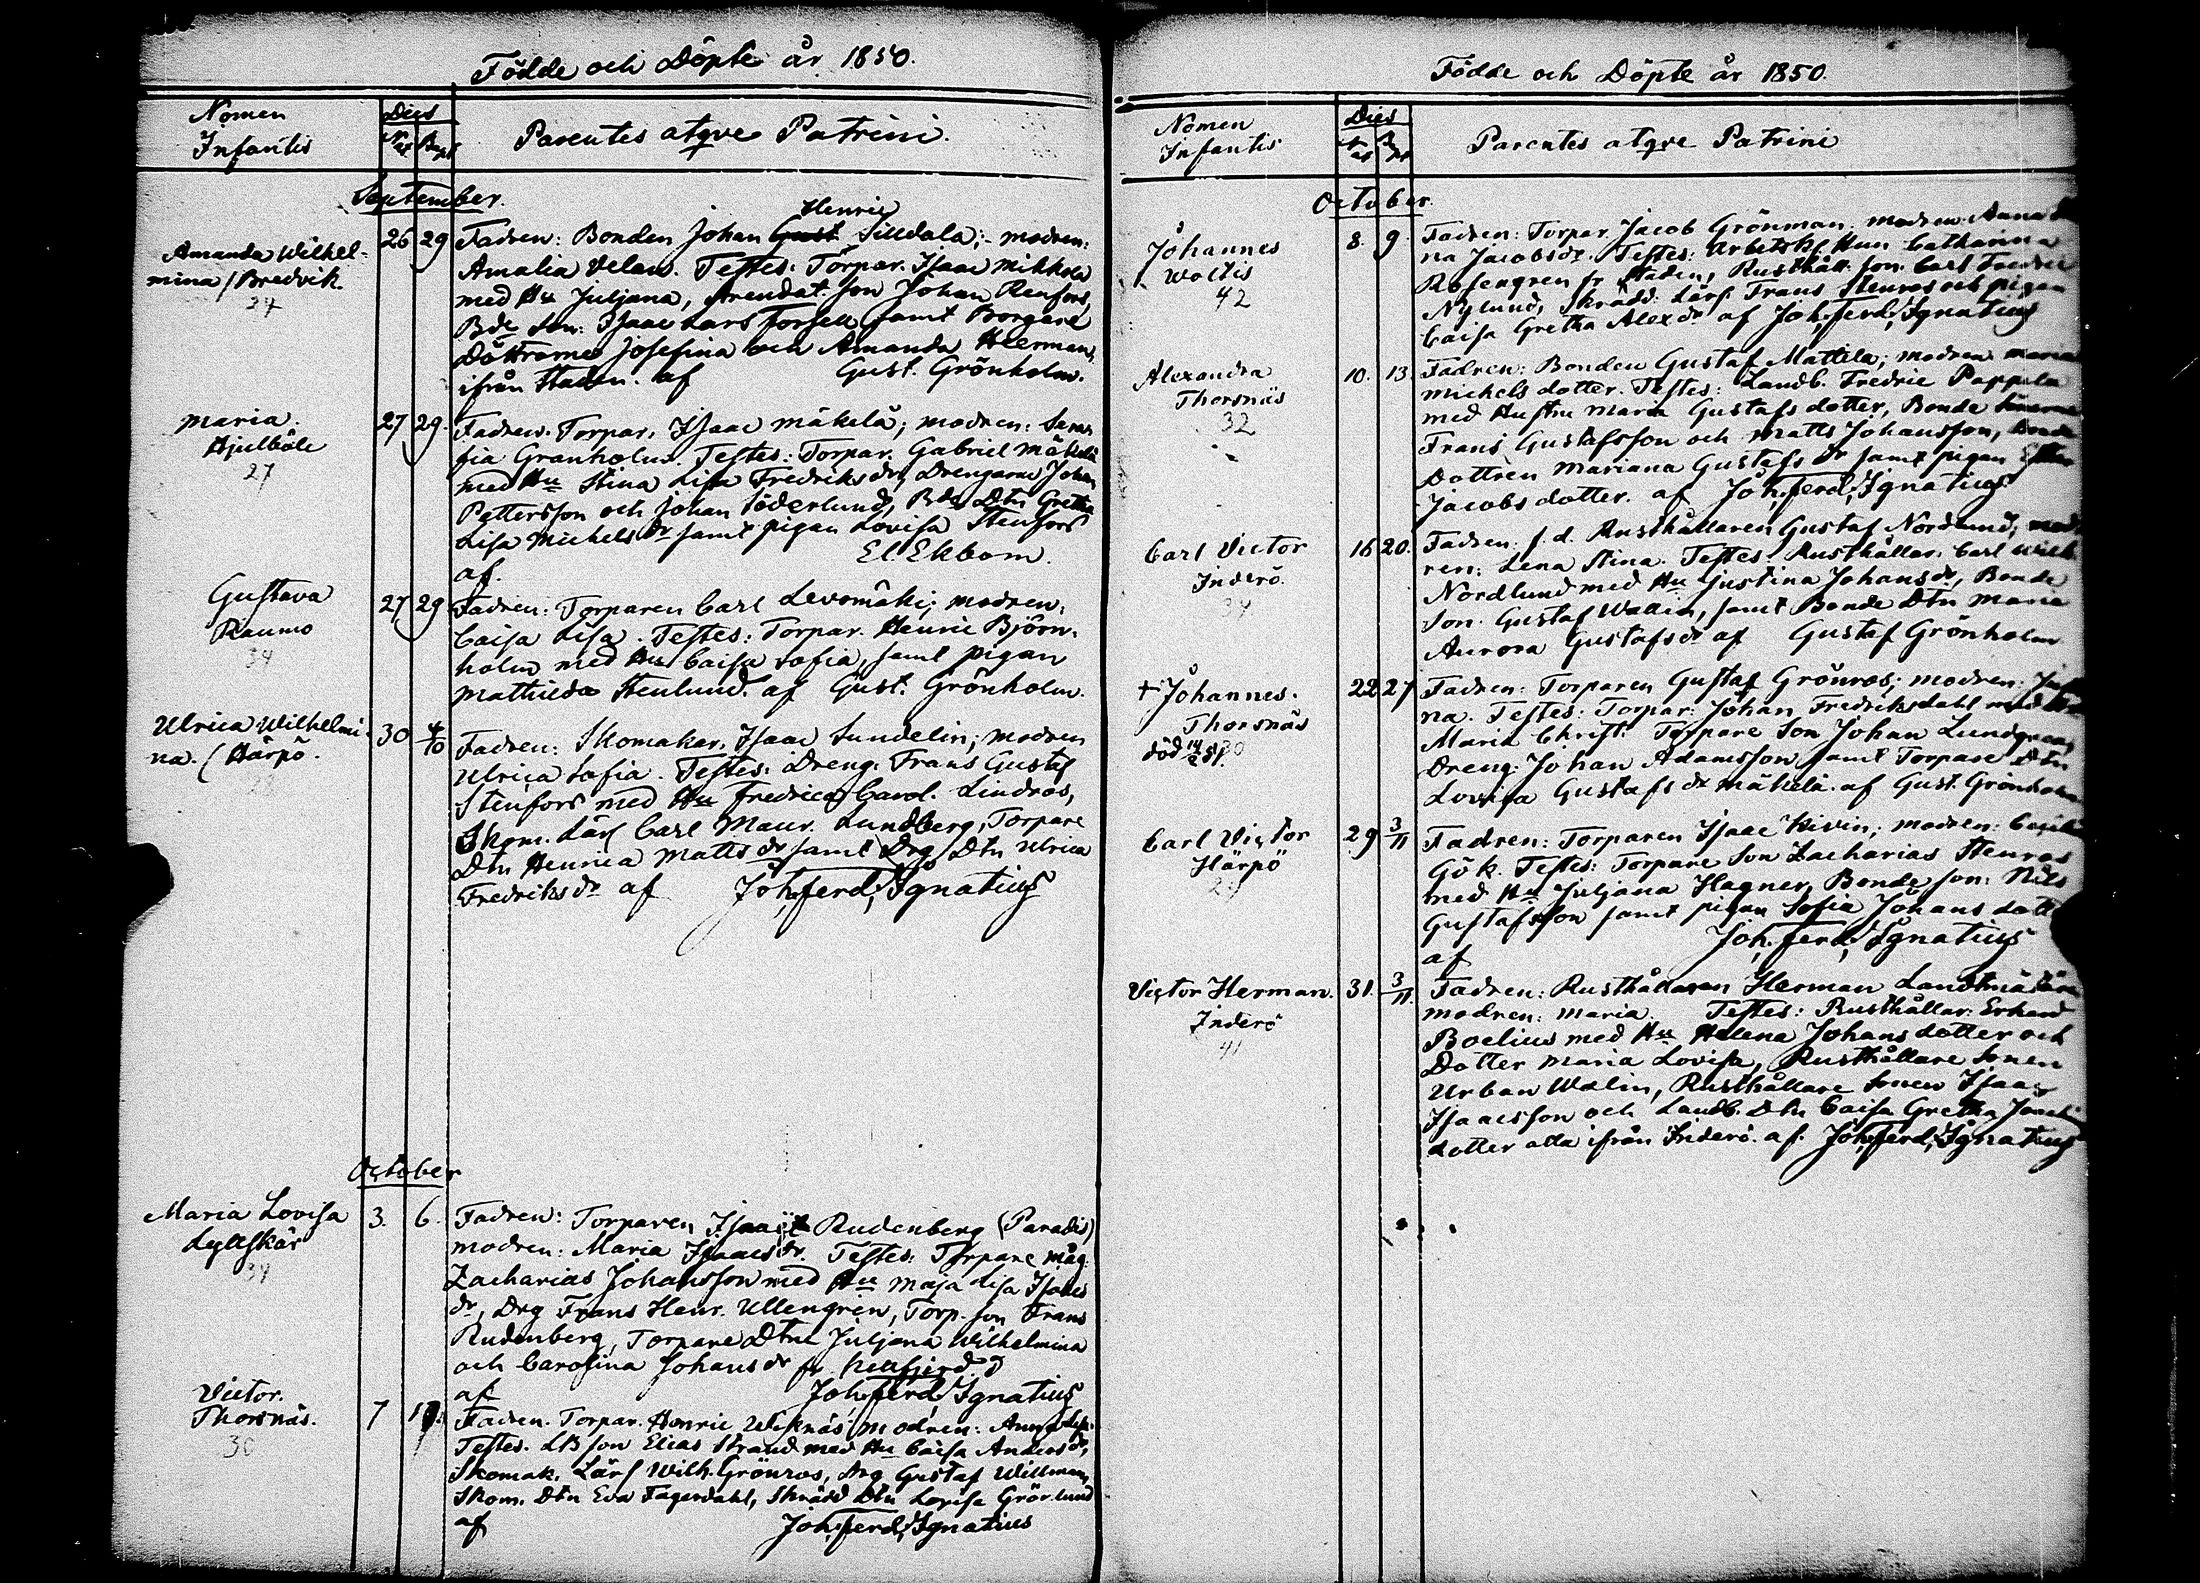 Födde och Döpte år 1850.
Nomen
Infantis
Dies
Nat
Bapt
Parentes atqve Patrini.
September.
Amanda Wilhel-
mina / Bredvik
27
26
29
Henric
Fadren: Bonden Johan Gust Silldala; modren:
Amalia Telaw. Testes: Torpar. Isaac Mikkola
med Hu Juljana, Arendat. Son Johan Renfors,
Bde Son: Isaac Lars Forsell, samt Borgare
Döttrarne Josefina och Amanda Heerman,
ifrån Staden. af Gust. Grönholm.
Maria.
Hjulböle
27
27
29.
Fadren. Torpar. Isaac Mäkelä; modren: Sera-
fia Granholm. Testes: Torpar. Gabriel Mäkelä
med Hu Stina Lisa Fredriks dr, Drengarne Johan
Pettersson och Johan Söderlund, Bde Dtn Gretha
Lisa Michels dr samt pigan Lovisa Stenfors
af. El. Ekbom.
Gustava
Raumo
34
27
29
Fadren: Torparen Carl Levomäki; modren,
Caisa Lisa. Testes: Torpar. Henric Björn-
holm med Hu Caisa Sofia, samt pigan
Mathilda Stenlund. af Gust. Grönholm.
Ulrica Wilhelmi-
na. / Härpö.
28
30
6/10
Fadren: Skomakar. Isaac Sundelin; modren
Ulrica Sofia. Testes: Dreng. Frans Gustaf
Stenfors med Hu Fredrica Carol. Lindros,
Skom. Lärl Carl Maur. Lundberg, Torpare
Dtn Henrica Matts dr samt Drg Dtn Ulrica
Fredriks dr af Joh. Ferd. Ignatius
October
Maria Lovisa
Lyltskär
39
3.
6.
Fadren: Torparen Isaac Rudenberg (Paradis)
modren: Maria Isaacs dr. Testes: Torpare måg.
Zacharias Johansson med Hu Maja Lisa Isaacs
dr, Drg Frans Henr. Ullengren, Torp. son Frans
Rudenberg, Torpare Dtne Juljana Wilhelmina
och Carolina Johans dr fr.
af Joh. Ferd. Ignatius
Victor.
Thorsnäs.
30
7
Fadren. Torpar. Henric Wiknäs; modren: Anna Lisa.
Testes. LB son Elias Strand med Hu Caisa Anders dr,
Skomak. Lärl Wilh. Grönros, Drg Gustaf Willman,
Skom. Dtn Eva Fagerdahl, Skrädd Dtn Lovisa Grönlund
af Joh. Ferd. Ignatius
Födde och Döpte år 1850.
Nomen
Infantis
Dies
Nat
Bapt
Parentes atqve Patrini
October.
Johannes
Woltis
42
8.
9.
Fadren: Torpar. Jacob Grönman, modren: Anna
na Jacobs dr. Testes: Arbetsk. Hun Catharina
Rosengren fr Staden, Rusthåll. son Carl Fredric
Nylund, Skrädd. Lärl. Frans Stenros och pigan
Caisa Gretha Alex dr af Joh. Ferd. Ignatius
Alexandra
Thorsnäs
32
10.
13.
Fadren: Bonden Gustaf Mattila; modren Maria
Michels dotter. Testes: Landb. Fredric Pappila
med Hustru Maria Gustafs dotter, Bonde Sönerna
Frans Gustafsson och Matts Johansson, Bonde
Dottren Mariana Gustafs dr samt pigan
Jacobs dotter. af Joh. Ferd. Ignatius
Carl Victor
Inderö.
34
16
20.
Fadren: f.d. Rusthållaren Gustaf Nordlund; mod-
ren: Lena Stina. Testes: Rusthållar. Carl Wilh.
Nordlund med Hu Justina Johans dr, Bonde
Son. Gustaf Wallin, samt Bonde Dtn Maria
Aurora Gustafs dr af Gustaf Grönholm
† Johannes.
Thorsnäs
30
död 14/2 51.
22
27
Fadren: Torparen Gustaf Grönros; modren:
na. Testes: Torpar. Johan Fredriksdahl med Hu
Maria Christ. Torpare Son Johan Lundgren,
Dreng. Johan Adamsson samt Torpare Dtn
Lovisa Gustafs dr Mäkelä. af Gust. Grönholm
Carl Victor
Härpö
29
3/11
Fadren: Torparen Isaac Kivin; modren: Cecilia
Gök. Testes: Torpare Son Zacharias Stenros
med Hu Juljana Hagner, Bonde Son: Nils
Gustafsson samt pigan Sofia Johans dott
af Joh. Ferd. Ignatius
Victor Herman.
Inderö
41
31.
3/11.
Fadren: Rusthållaren Herman
modren: Maria. Testes: Rusthållar. Erhard
Boelius med Hu Helena Johans dotter och
Dotter Maria Lovisa, Rusthållare Sonen
Urban Walin, Rusthållare Sonen Isaac
Isaacsson och Landb. Dtn Caisa Gretha
dotter alla ifrån Inderö. af. Joh. Ferd. Ignatius